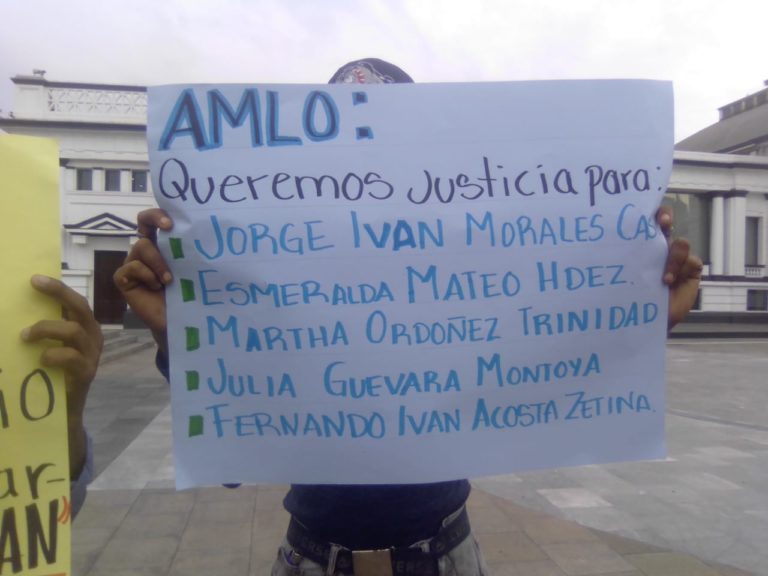 AMLO:
Queremos Justicia para:
JORGE IVAN MORALES CAS
ESMERALDA MATEO HDEZ.
MARTHA ORDOÑEZ TRINIDAD
JULIA GUEVARA MONTOYA
FERNANDO IVAN ACOSTA ZETINA.
io
ar-
AN"